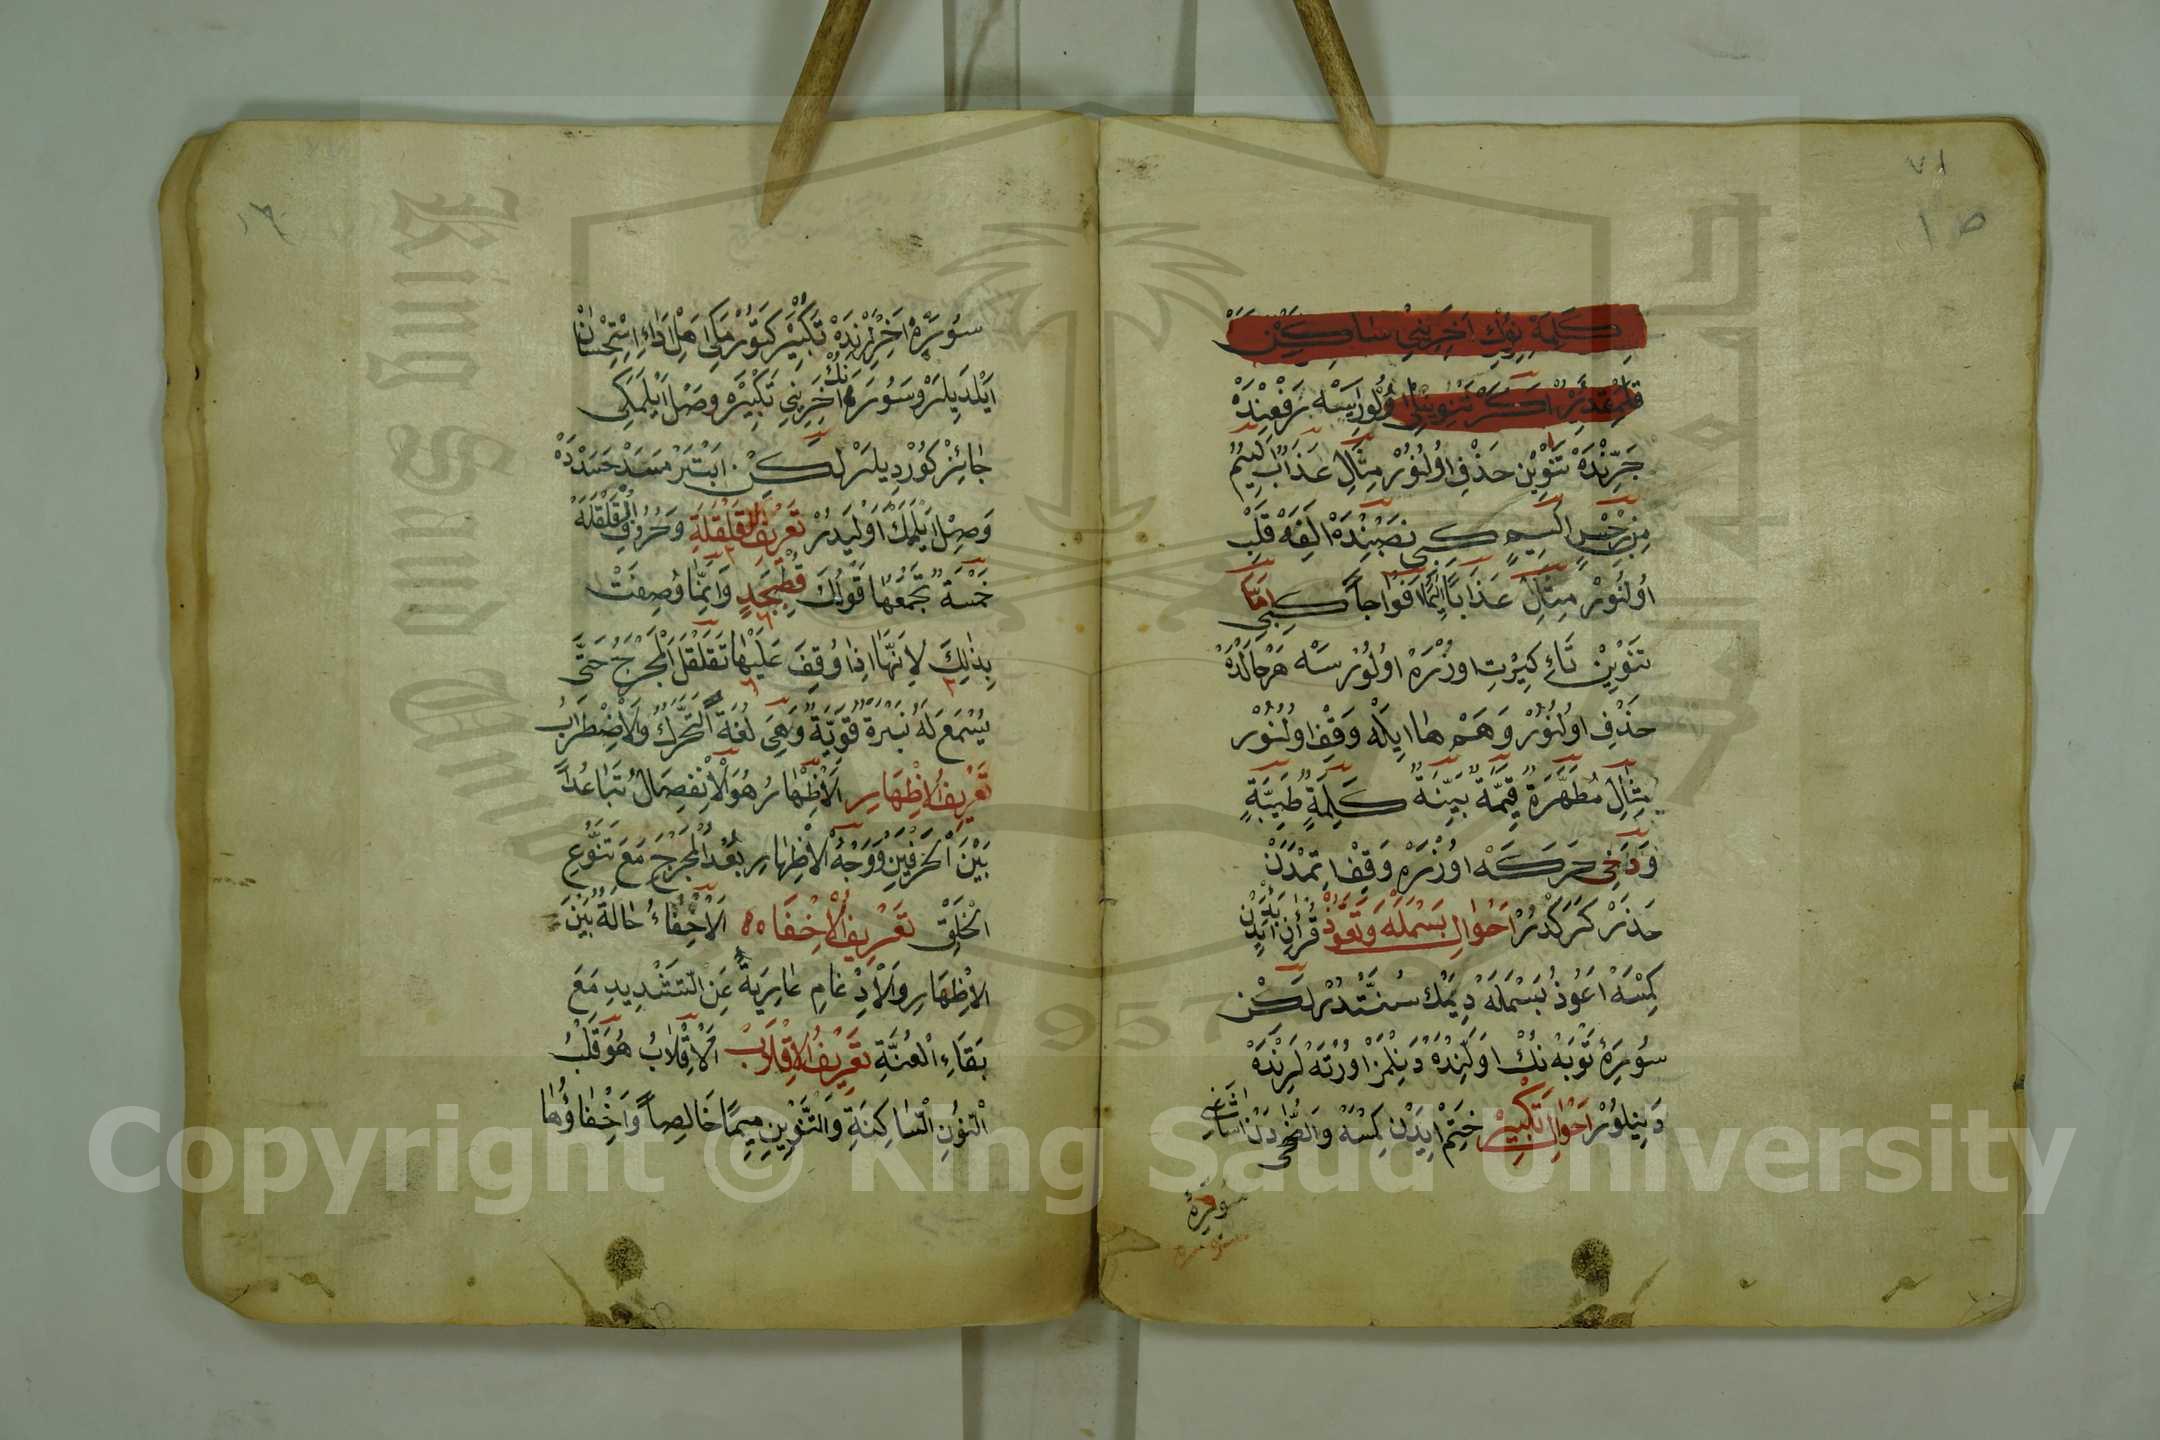 ٧١
١٥
كَلِمَةْ نِوُكِ اَخِرَينِيْ سَاكِنْ
قِلْمَقْدَرْ اَكَرْ تَنْوِينْلِي اُولُورْيسَه رَفْعِنْدَهْ
جَرِّنْدَهْ تَنْوِيْن حَذْفِ اوُلُنُوْرْ مِثَالِ عَذَابٌ اَلِيمٌ
مِن رِجْسٍ اَلِيمٍ كِبِى نَصْبِنْدَهْ اَلِفَهْ قَلْبِ
اوُلنُوْرْ مِثَالِ عَذَابًا اَلِيْمًا اَفْوَاجًا كِبِى اَمَّا
تَنْوِيْنْ تَاءِ كِيْرْتِ اوُزْرَهْ اوُلُوْرْسَه هَرْحَالْدَهْ
حَذْفِ اوُلنُوُرْ وَهَمْ هَا ايلَهْ وَقْفِ اوُلنُوُرْ
مِثَالِ مُطَهَّرَةٌ قَيِّمَةٌ بَيِّنَةٌ كَلِمَةٍ طَيِّبَةٍ
وَدَخِى حَرَكَه اوُزْرَهْ وَقْفِ اِتمَدَنْ
حَذَرْ كَرَكْدُرْ اَحْوَالِ بَسْمَلَهْ وَتَعَوُّذْ قُرْأنِ
كِمْسَهْ اَعُوذُ بَسْمَلَهْ دِيمَك سُنَّتْدُرْ لَكِنْ
سُورَهٴ تَوْبَهْ نُكْ اوَلِنْدَهْ دَيِنْلمَزْ اوُرْتَهْ لَرِنْدَهْ
دَيِنِلوُرْ اَحْوَالِ تَكْبِيْرْ خَتِمْ ايدَنْ كِمْسَهْ وَالضُّحٰى دَنْ اَشَاغِى
سُورَهٴ
١٦
سُورَهٴ اَخِرْلَرْنِدَهْ تَكْبِيْر كَتوُرْمَكِى اَهْلِ اَدَاءِ اِسْتِحْسَانْ
اَيْلَدِيلَرْ وَسُورَهٴ نِكْ اَخَرِينِى تَكْبِيْرَه وَصْلْ اَيْلَمَكِى
جَائِزْ كوُرْدِيلَرْ لَكِنْ اَبْتَرْ مَسَدْ حَسَدْدَهْ
وَصِلْ اَيْلَمَكْ اَوْلَيدُرْ تَعْرِيفُ الْقَلْقَلَةِ وَحُرُوُفِ الْقَلْقَلَهْ
خَمْسَةٌ تَجَمْعُهَا قَوْلُكَ قُطْبُجَدٍ وَاِنَّمَا وُصِفَتْ
بِذٰلِكَ لِاَنَّهَا اِذَا وُقِفَ عَلَيْهَا تَقَلْقَلَ الْمَخْرَجُ حَتَّى
يُسْمَعَ لَهُ نَبَرَةٌ قَوِيَّةٌ وَهِىَ لُغَةً اَلتَّحَرُّكُ وَالْاِضْطِرَابُ
تَعْرِيفُ الْاِظْهَارِ اَلْاِظْهَارُ هُوَ الْاِنْفِصَالُ تَبَاعُدًا
بَيْنَ الْحَرْفَيْنِ وَوَجْهُ الْاِظْهَارِ بُعْدُ الْمَخْرَجِ مَعَ تَنَوُّعِ
الْحَلْقِ تَعْرِيفُ الْاِخْفَاء اَلْاِخْفَاءُ حَالَةٌ بَيْنَ
الْاِظْهَارِ وَالْاِدْغَامِ عَارِيَةٌ عَنِ التَّشْدِيدِ مَعَ
بَقَاءِ الْغُنَّةِ تَعْرِيفُ الْاِقْلَابْ اَلْاِقْلَابُ هُوَ قَلْبُ
النُّونِ السَّاكِنَةِ وَالتَّنْوِينِ مِيمًا خَالِصًا وَاَخْفَاؤُهَا
King Saud University
1957
Copyright © King Saud University